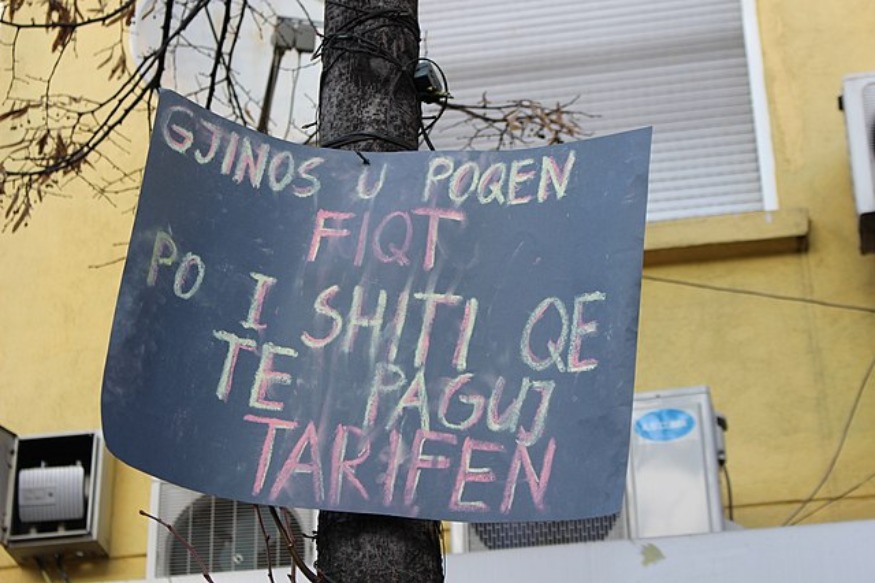 GJINOS U POQEN
FIQT
PO I SHITI QE
TE PAGUJ
TARIFEN